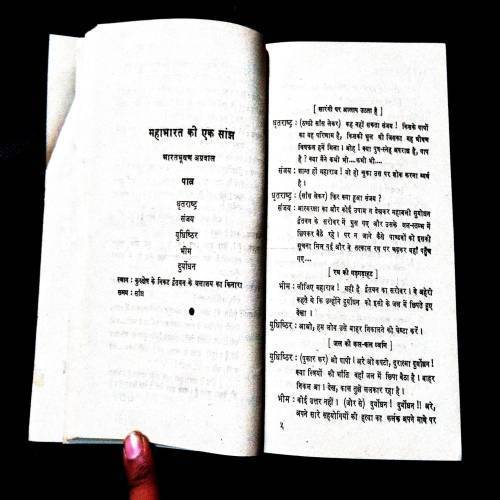 महाभारत की एक सांझ
भारतभूषण अग्रवाल
पात्र
धृतराष्ट्र
संजय
युधिष्ठिर
भीम
दुर्योधन
स्थान : कुरुक्षेत्र के निकट द्वैतवन के जलाशय का किनारा
समय : सांझ
[ सारंगी पर आलाप उठता है ]
धृतराष्ट्र : (ठण्डी साँस लेकर) कह नहीं सकता संजय ! किसके पापों
का यह परिणाम है, किसकी भूल थी जिसका यह भीषण
विषफल हमें मिला। ओह ! क्या पुत्र-स्नेह अपराध है, पाप
है ? क्या मैंने कभी भी....कभी भी....
संजय : शान्त हों महाराज ! जो हो चुका उस पर शोक करना व्यर्थ
है।
धृतराष्ट्र : (साँस लेकर) फिर क्या हुआ संजय ?
संजय : आत्मरक्षा का और कोई उपाय न देखकर महाबली सुयोधन
द्वैतवन के सरोवर में घुस गए और उसके जल-स्तम्भ में
छिपकर बैठे रहे। पर न जाने कैसे पाण्डवों को इसकी
सूचना मिल गई और वे तत्काल रथ पर चढ़कर वहाँ पहुँच
गए....
[ रथ की गड़गड़ाहट ]
भीम : लीजिए महाराज ! यही है द्वैतवन का सरोवर। वे अहेरी
कहते थे कि उन्होंने दुर्योधन को इसी के जल में छिपते हुए
देखा।
युधिष्ठिर : आओ, हम लोग उसे बाहर निकालने की चेष्टा करें।
[ जल की कल-कल ध्वनि ]
युधिष्ठिर : (पुकार कर) ओ पापी ! अरे ओ कपटी, दुरात्मा दुर्योधन !
क्या स्त्रियों की भाँति वहाँ जल में छिपा बैठा है। बाहर
निकल आ। देख, काल तुझे ललकार रहा है।
भीम : कोई उत्तर नहीं। (जोर से) दुर्योधन ! दुर्योधन !! अरे,
अपने सारे सहयोगियों की हत्या का कलंक अपने माथे पर